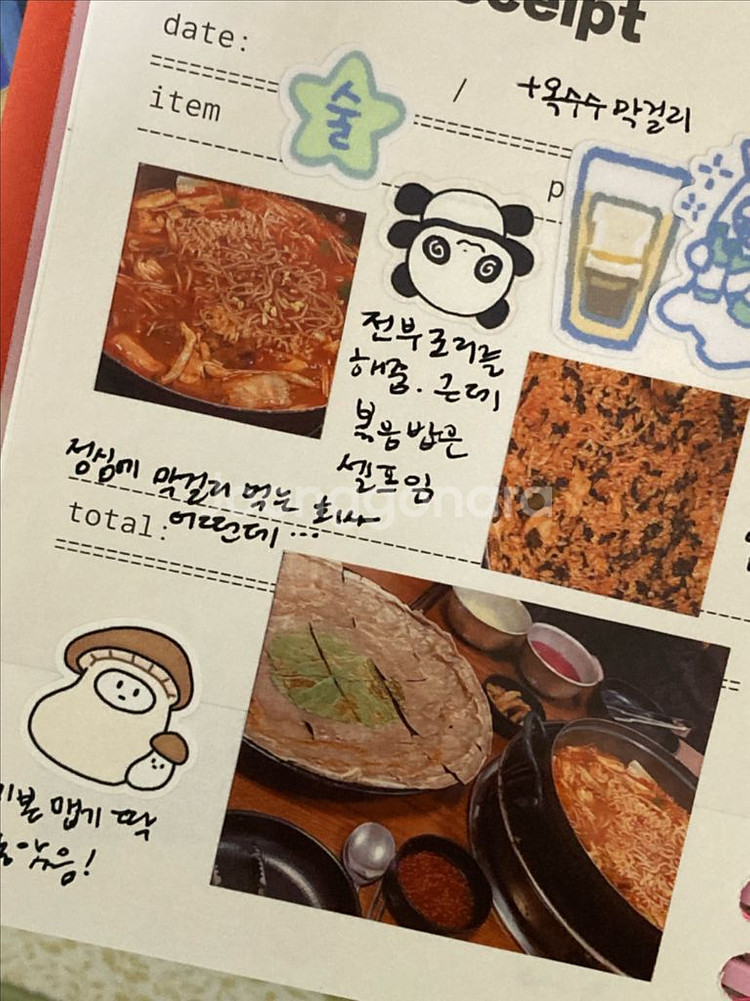 receipt
date:
/
+옥수수 막걸리
item
술
전부 조리를
해줌. 근데
볶음밥은
셀프임
점심에 막걸리 먹는 회사
어떤데...
total:
기본 맵기 딱
좋았음!